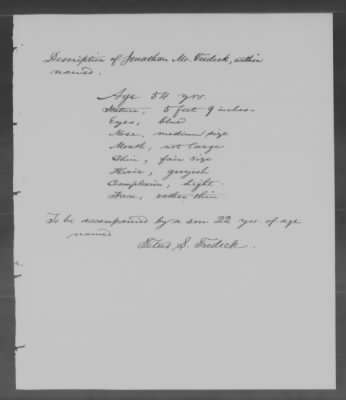 Description of Jonathan Mc. Fredick, within
named.
Age 54 yrs.
Stature, 5 feet 9 inches.
Eyes, blue
Nose, medium size
Mouth, not large
Chin, fair size
Hair, greyish
Complexion, light.
Face, rather thin.
To be accompanied by a son 22 yrs. of age
named
S. Fredick.